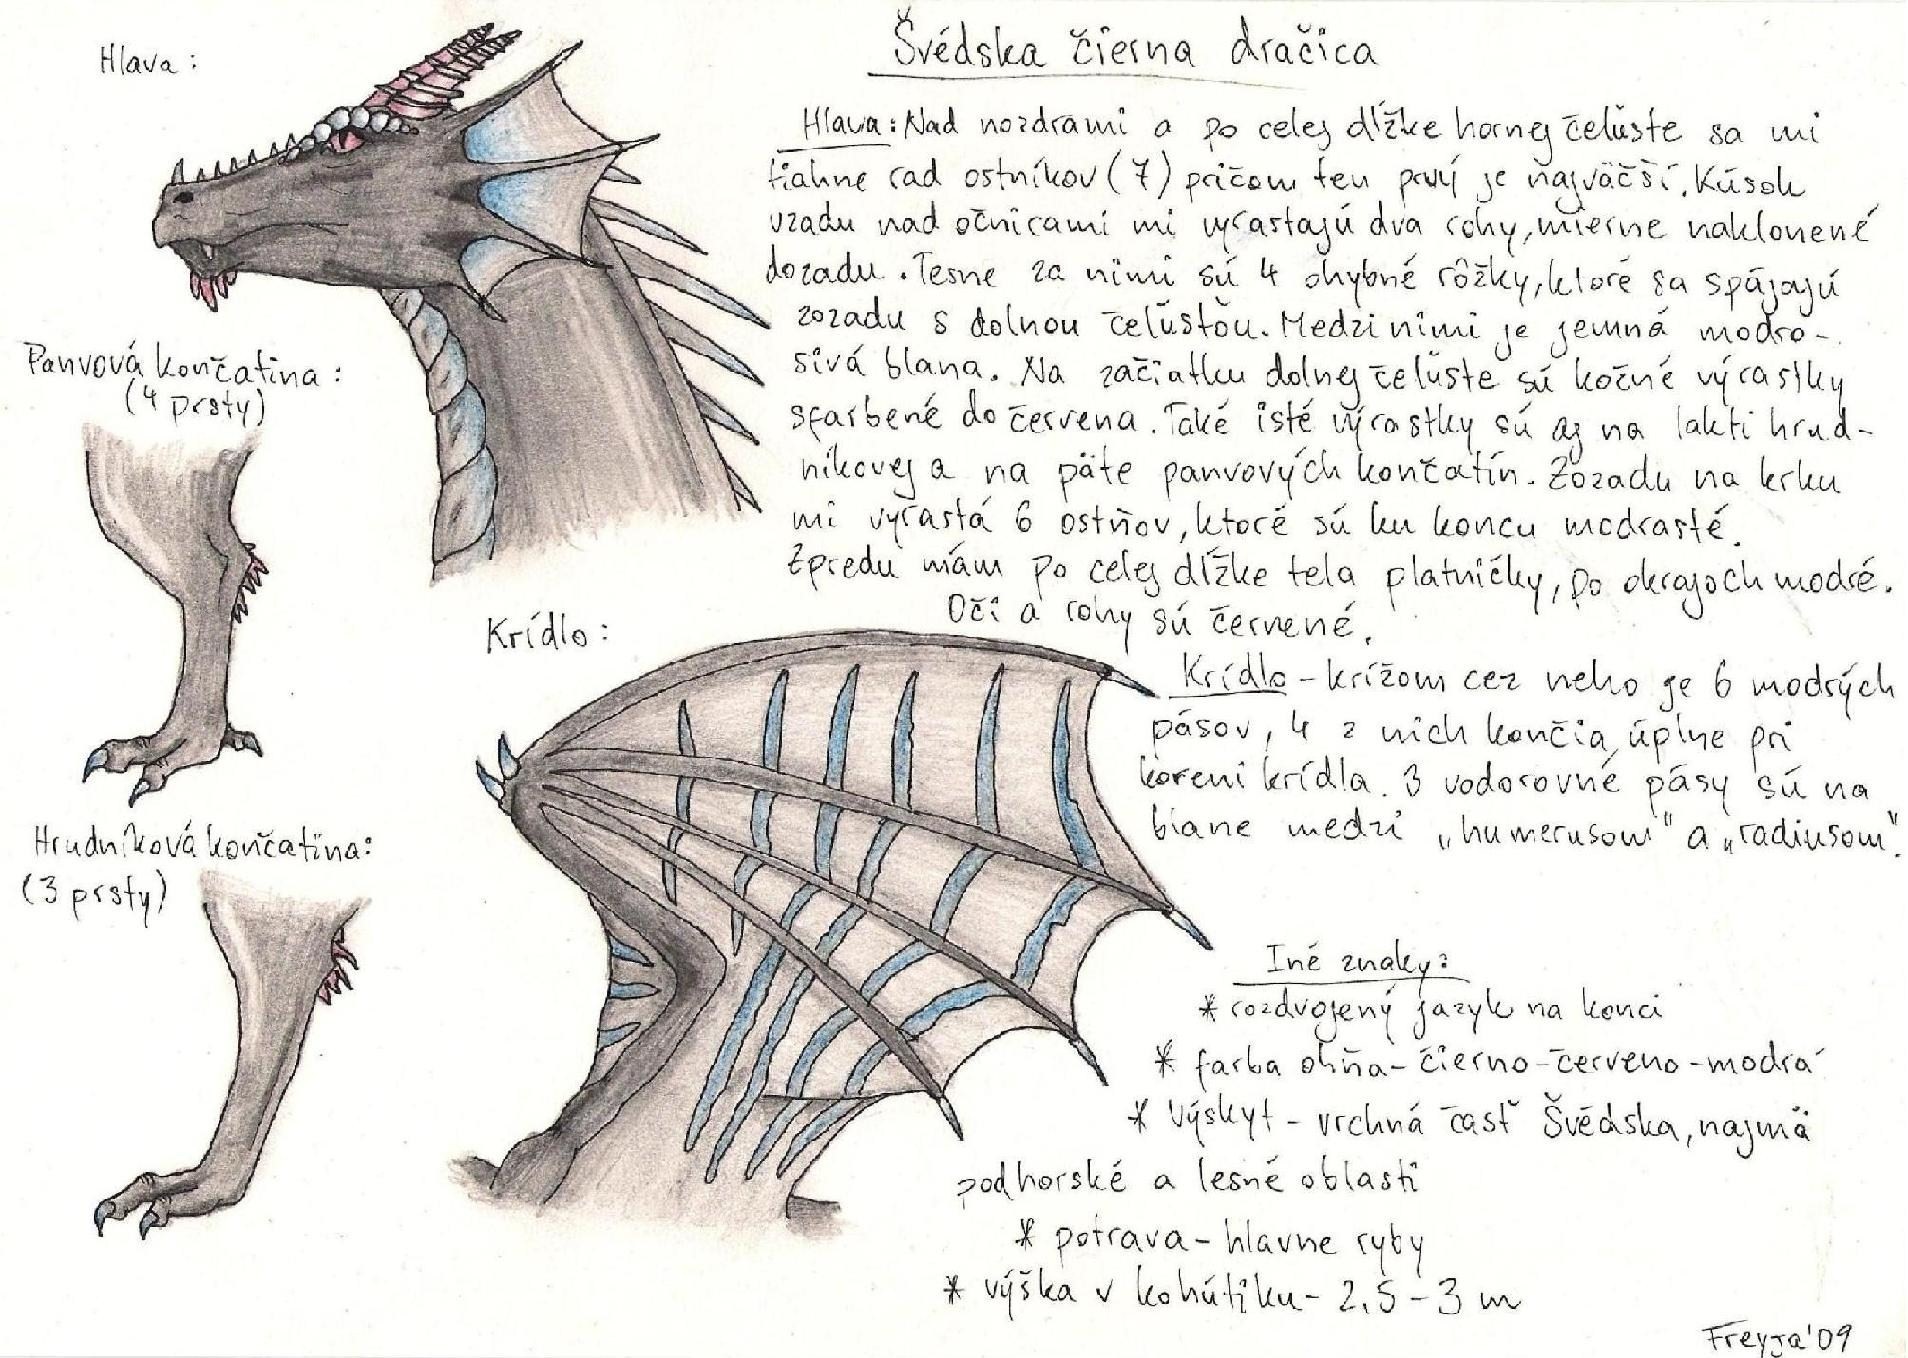 Švédska čierna dračica
Hlava:
Hlava: Nad nozdrami a po celej dĺžke hornej čeľuste sa mi
tiahne rad ostníkov (7) pričom ten prvý je najväčší. Kúsok
vzadu nad očnicami mi vyrastajú dva rohy, mierne naklonené
dozadu. Tesne za nimi sú 4 ohybné rôžky, ktoré sa spájajú
zozadu s dolnou čeľusťou. Medzi nimi je jemná modro-
sivá blana. Na začiatku dolnej čeľuste sú kočné výrastky
sfarbené do červena. Také isté výrastky sú aj na lakti hrud-
níkovej a na päte panvových končatín. Zozadu na krku
mi vyrastá 6 ostňov, ktoré sú ku koncu modrasté.
Zpredu mám po celej dĺžke tela platničky, po okrajoch modré.
Oči a rohy sú červené.
Panvová končatina:
(4 prsty)
Hrudníková končatina:
(3 prsty)
Krídlo:
Krídlo - krížom cez neho je 6 modrých
pásov, 4 z nich končia úplne pri
koreni krídla. 3 vodorovné pásy sú na
blane medzi „humerusom" a „radiusom".
Iné znaky:
* rozdvojený jazyk na konci
* farba ohňa - čierno-červeno-modrá
* výskyt - vrchná časť Švédska, najmä
podhorské a lesné oblasti
* potrava - hlavne ryby
* výška v kohútiku - 2,5 - 3 m
Freyja'09